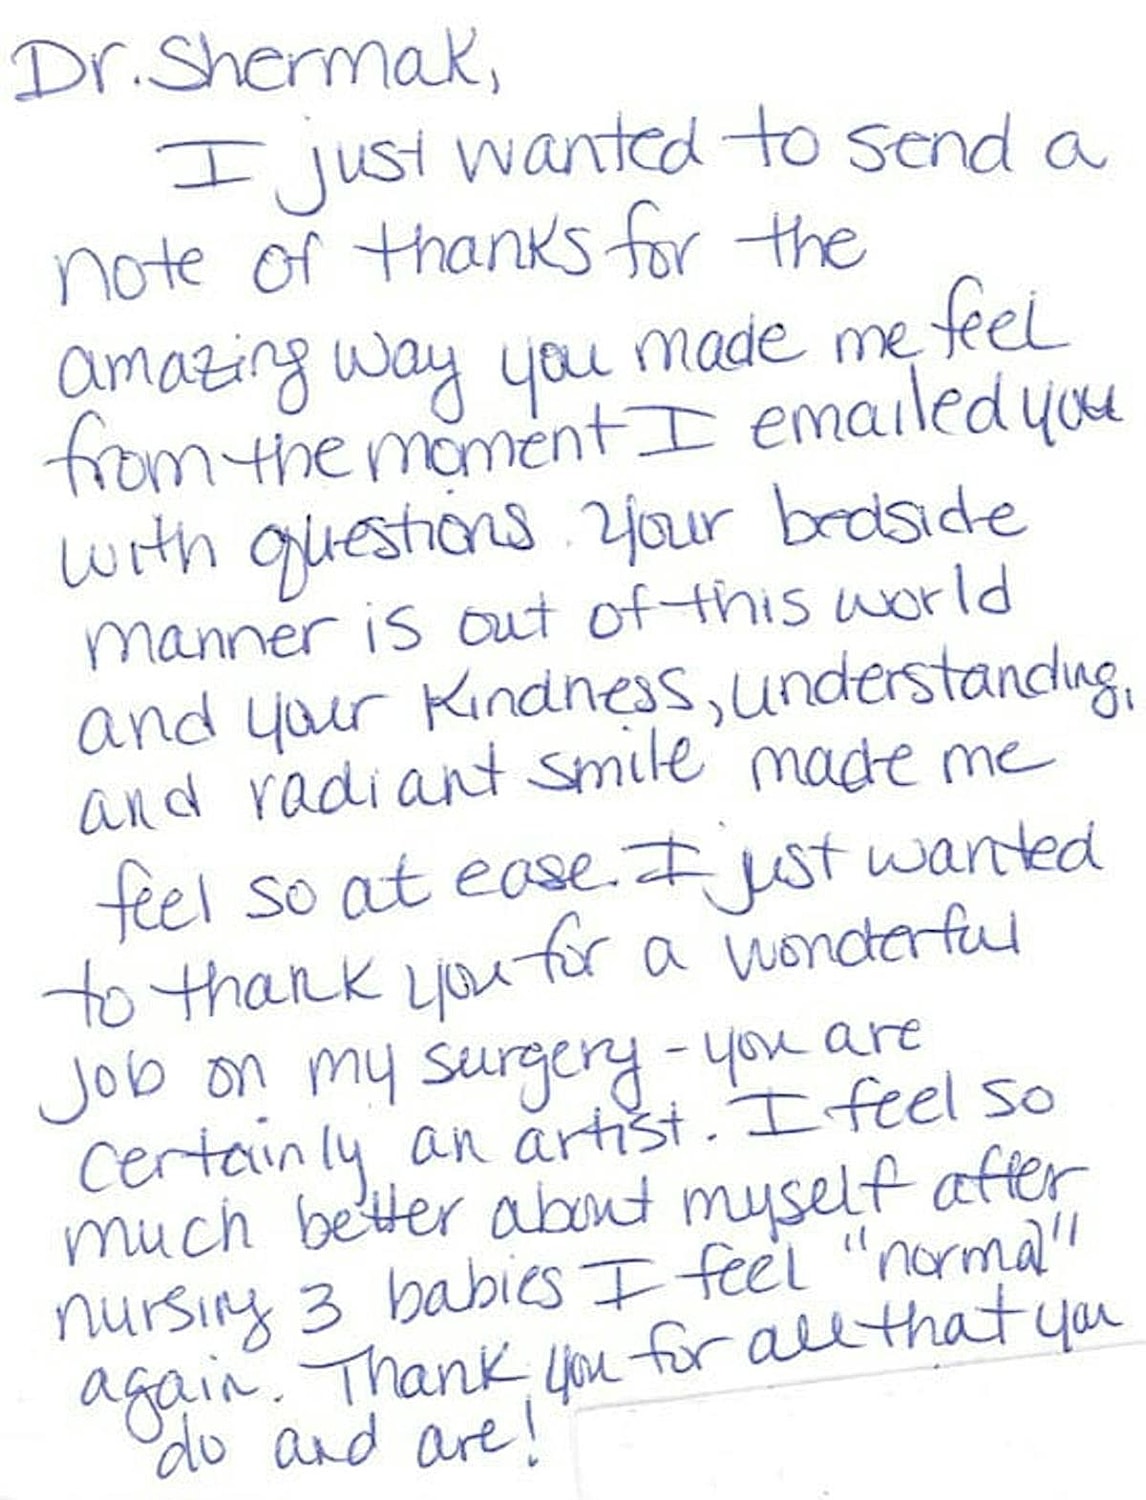 Dr. Shermak,
I just wanted to send a
note of thanks for the
amazing way you made me feel
from the moment I emailed you
with questions. Your bedside
manner is out of this world
and your kindness, understanding,
and radiant smile made me
feel so at ease. I just wanted
to thank you for a wonderful
job on my surgery - you are
certainly an artist. I feel so
much better about myself after
nursing 3 babies I feel "normal"
again. Thank you for all that you
do and are!